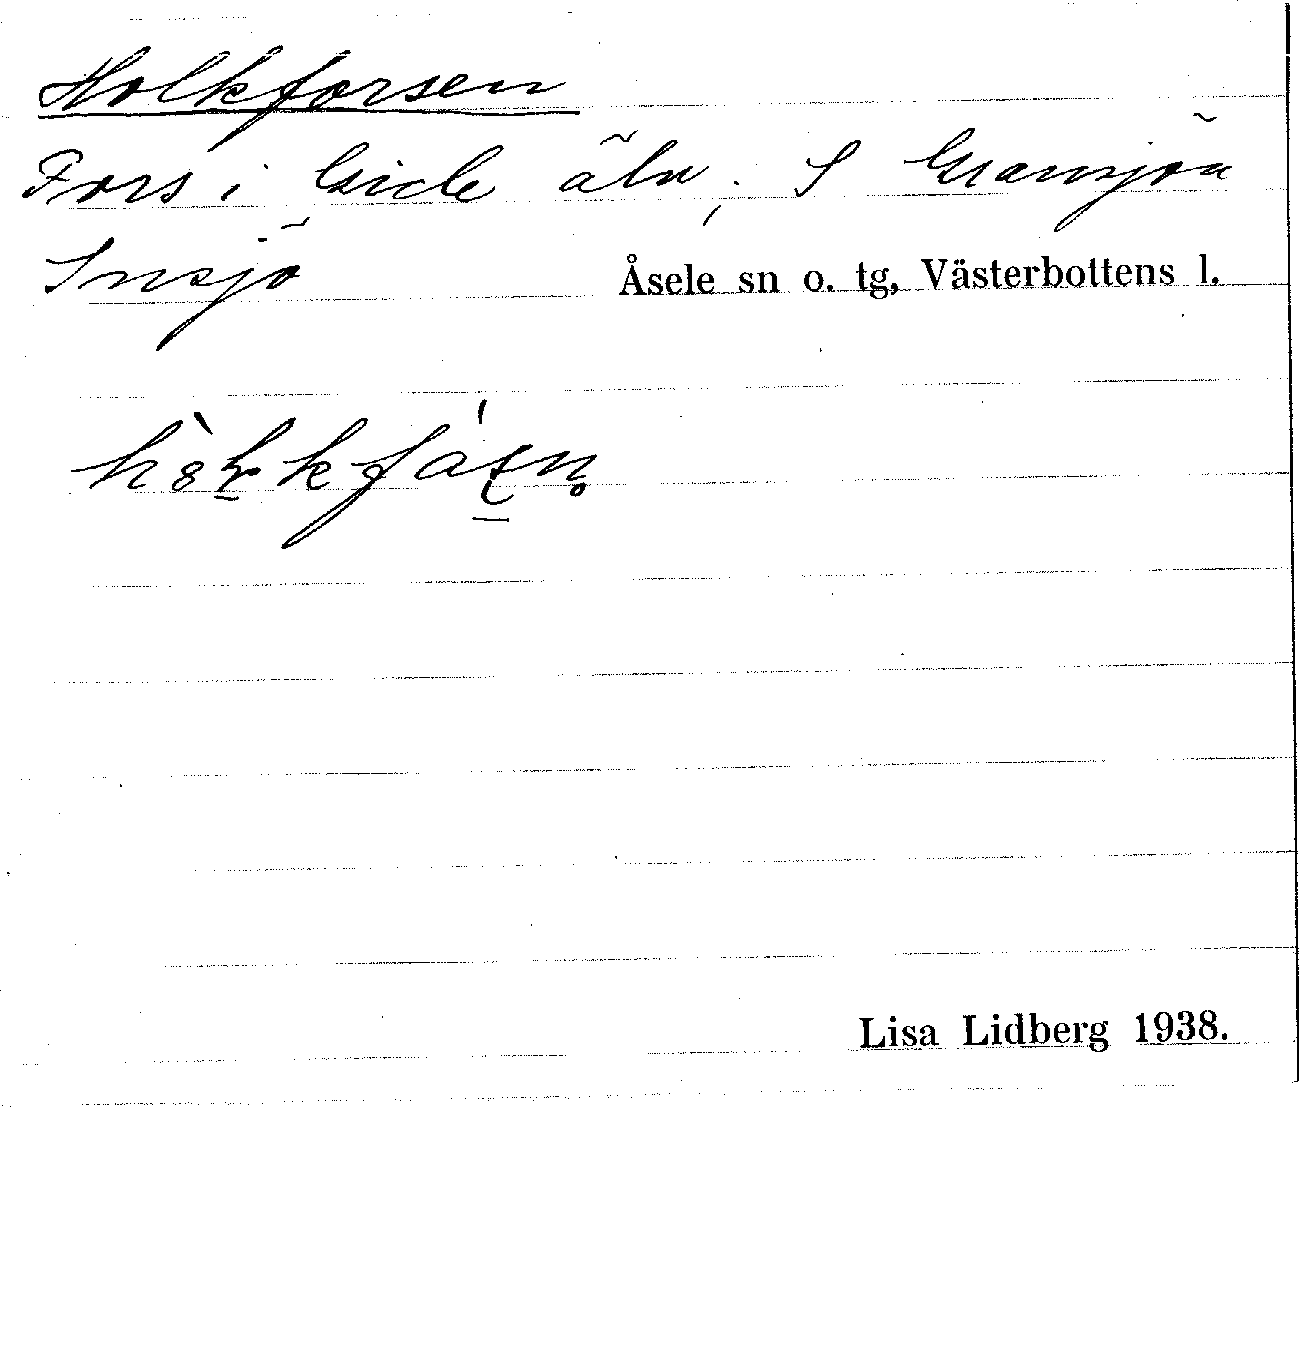 Holkforsen
Fors i Gide älv, S Gransjön
Insjö Åsele sn o. tg, Västerbottens l.
Lisa Lidberg 1938.